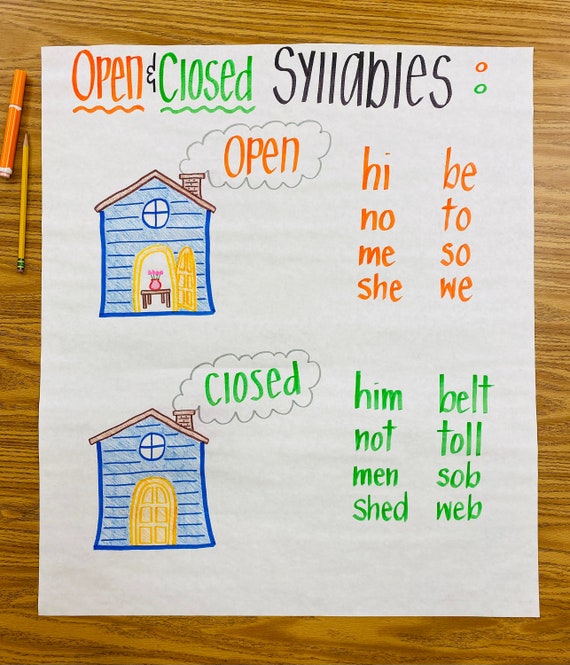 Open & Closed Syllables :
Open
hi be
no to
me so
she we
closed
him belt
not toll
men sob
shed web